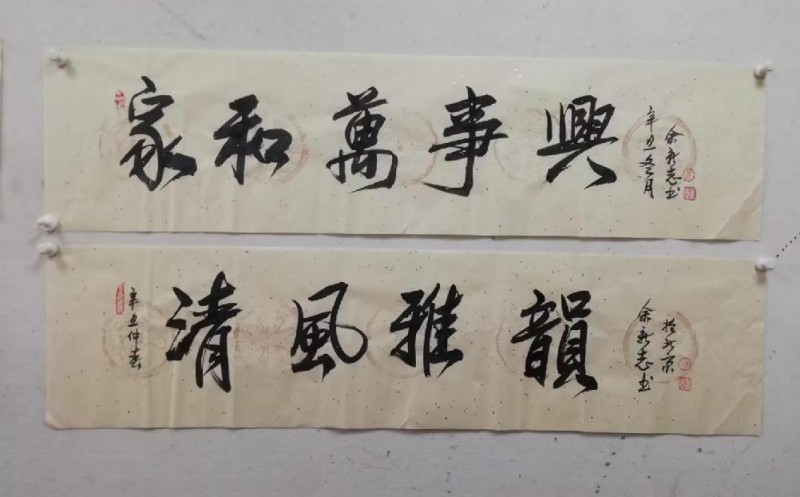 家和萬事興
辛丑冬月
余新志书
辛丑仲春
清風雅韻
余新志书
於北京